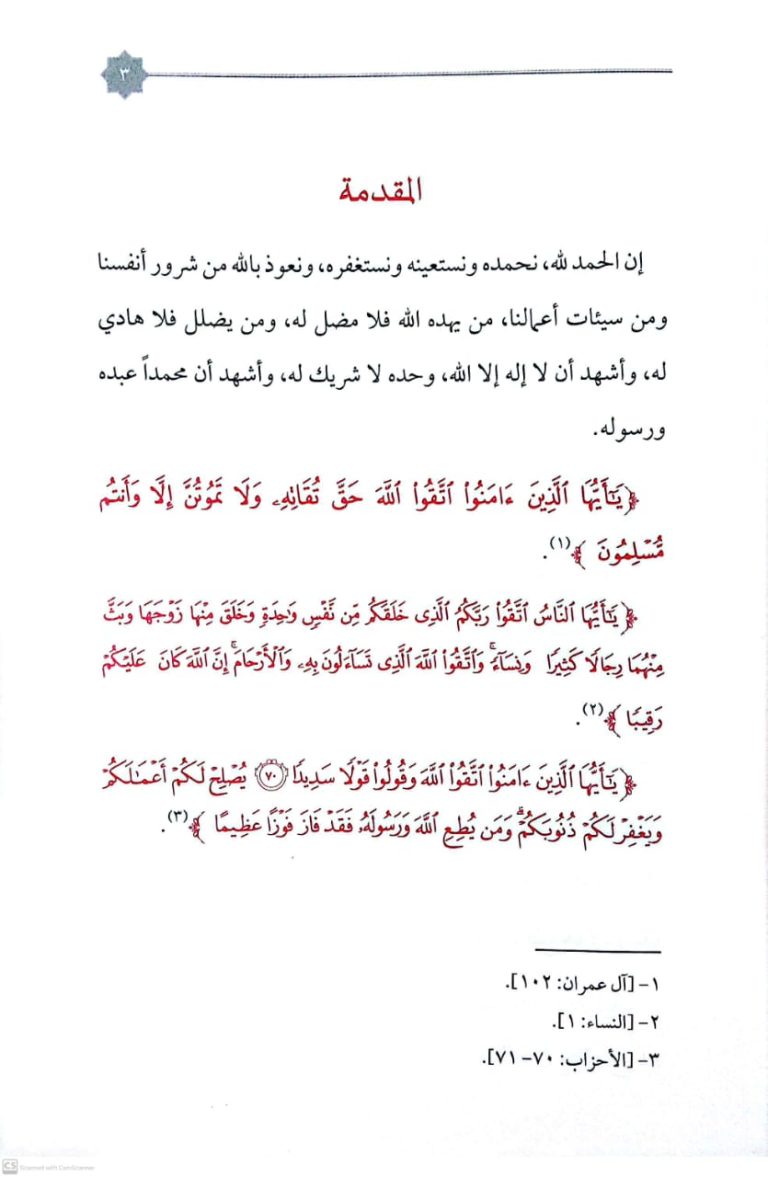 ٣
المقدمة
إن الحمد لله، نحمده ونستعينه ونستغفره، ونعوذ بالله من شرور أنفسنا
ومن سيئات أعمالنا، من يهده الله فلا مضل له، ومن يضلل فلا هادي
له، وأشهد أن لا إله إلا الله، وحده لا شريك له، وأشهد أن محمداً عبده
ورسوله.
﴿يَـٰٓأَيُّهَا ٱلَّذِينَ ءَامَنُوا۟ ٱتَّقُوا۟ ٱللَّهَ حَقَّ تُقَاتِهِۦ وَلَا تَمُوتُنَّ إِلَّا وَأَنتُم
مُّسْلِمُونَ ﴾(١).
﴿يَـٰٓأَيُّهَا ٱلنَّاسُ ٱتَّقُوا۟ رَبَّكُمُ ٱلَّذِى خَلَقَكُم مِّن نَّفْسٍ وَٰحِدَةٍ وَخَلَقَ مِنْهَا زَوْجَهَا وَبَثَّ
مِنْهُمَا رِجَالًا كَثِيرًا وَنِسَآءً ۚ وَٱتَّقُوا۟ ٱللَّهَ ٱلَّذِى تَسَآءَلُونَ بِهِۦ وَٱلْأَرْحَامَ ۚ إِنَّ ٱللَّهَ كَانَ عَلَيْكُمْ
رَقِيبًا ﴾(٢).
﴿يَـٰٓأَيُّهَا ٱلَّذِينَ ءَامَنُوا۟ ٱتَّقُوا۟ ٱللَّهَ وَقُولُوا۟ قَوْلًا سَدِيدًا ٧٠ يُصْلِحْ لَكُمْ أَعْمَـٰلَكُمْ
وَيَغْفِرْ لَكُمْ ذُنُوبَكُمْ ۗ وَمَن يُطِعِ ٱللَّهَ وَرَسُولَهُۥ فَقَدْ فَازَ فَوْزًا عَظِيمًا ﴾(٣).
١- [آل عمران: ١٠٢].
٢- [النساء: ١].
٣- [الأحزاب: ٧٠- ٧١].
CS Scanned with CamScanner